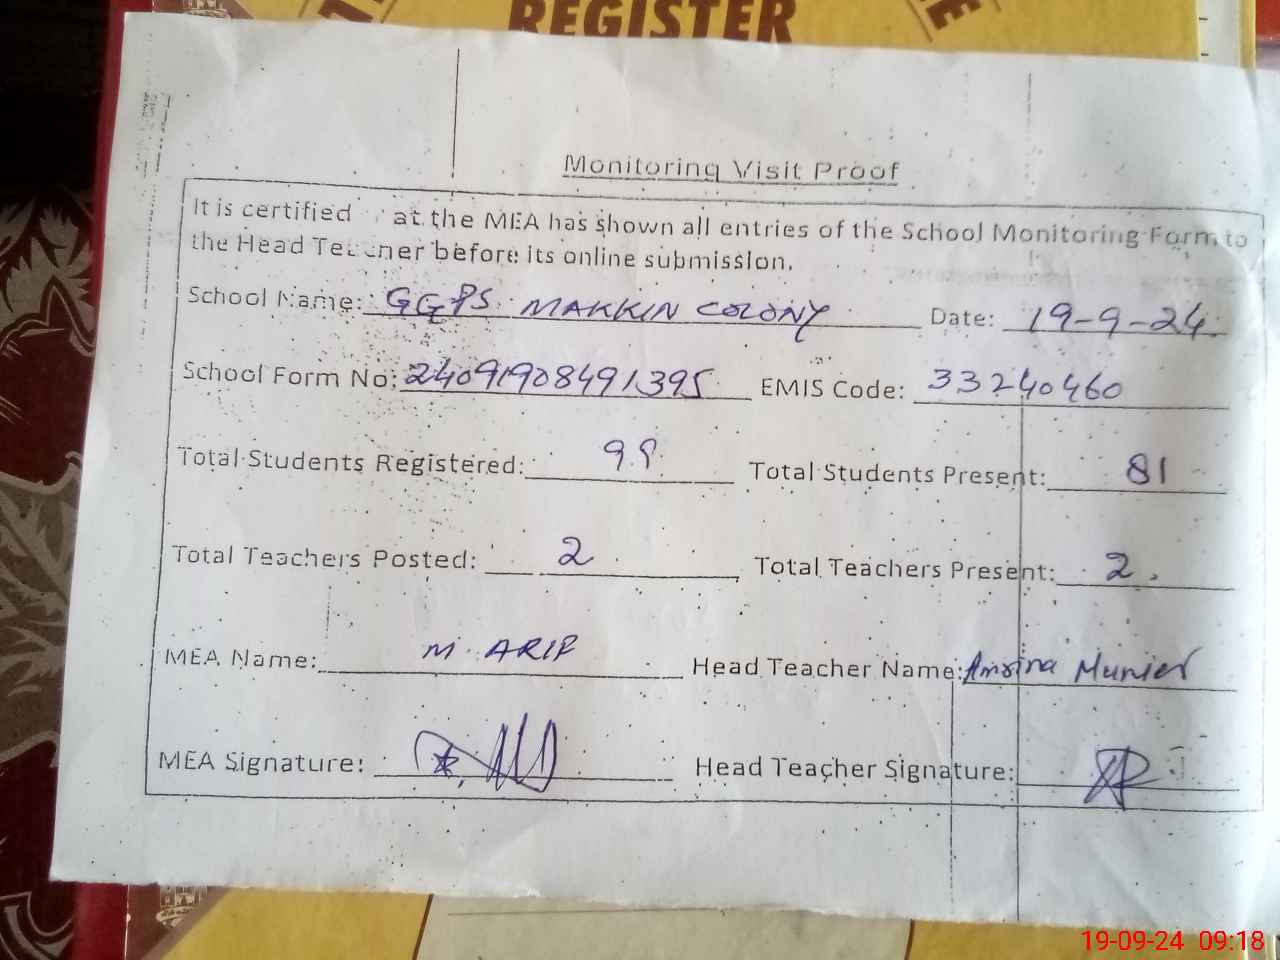 REGISTER
Monitoring Visit Proof
It is certified at the MEA has shown all entries of the School Monitoring Form to
the Head Teacher before its online submission.
School Name: GGPS. MAKKIN COLONY Date: 19-9-24
School Form No: 24091908491395 EMIS Code: 33240460
Total Students Registered: Total Students Present: 81
Total Teachers Posted: 2 Total Teachers Present: 2.
MEA Name: M. ARIF Head Teacher Name:
MEA Signature: Head Teacher Signature:
19-09-24 09:18